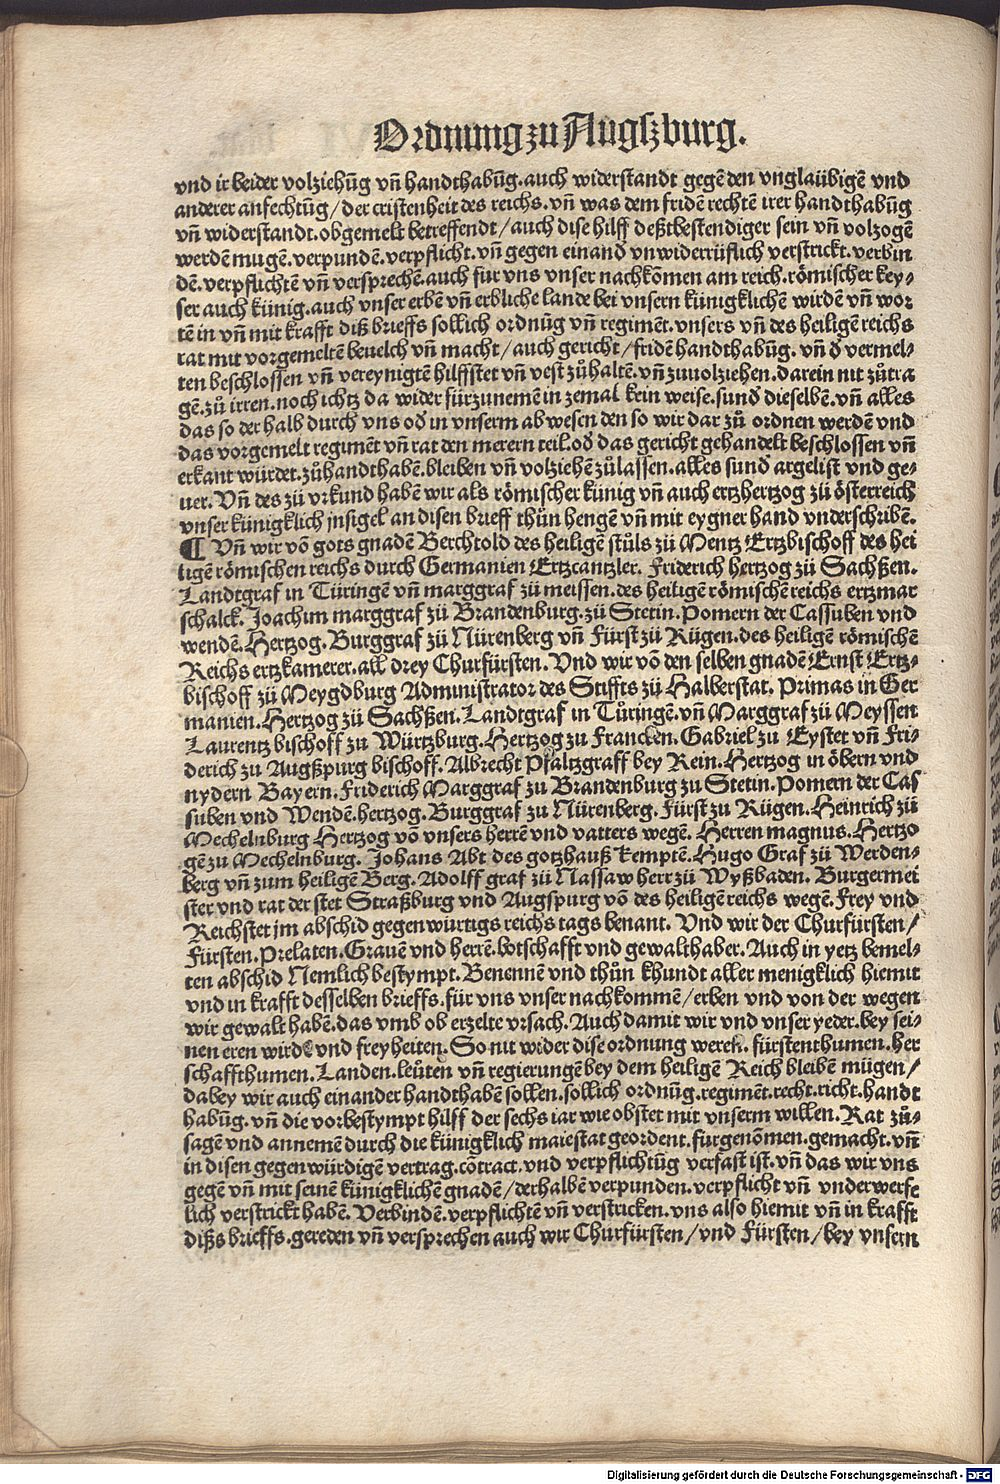 Ordnung zu Augszburg.
vnd ir beider volziehũg vñ handthabũg. auch widerstandt gegẽ den vnglaübigẽ vnd
anderer anfechtũg / der cristenheit des reichs. vñ was dem fridẽ rechtẽ irer handthabũg
vñ widerstandt. obgemelt betreffendt / auch dise hilff deßtbestendiger sein vñ volzogẽ
werdẽ mugẽ. verpundẽ. verpflicht. vñ gegen einand̛ vnwiderrüflich verstrickt. verbin
dẽ. verpflichtẽ vñ versprechẽ. auch für vns vnser nachkõmen am reich. römischer key-
ser auch künig. auch vnser erbẽ vñ erbliche lande bei vnsern künigklichẽ wirdẽ vñ wor
tẽ in vñ mit krafft diß brieffs sollich ordnũg vñ regimẽt. vnsers vñ des heiligẽ reichs
rat mit vorgemeltẽ beuelch vñ macht / auch gericht / fridẽ handthabũg. vñ d̛ vermel-
ten beschlossen vñ vereynigtẽ hilff stet vñ vest zůhaltẽ. vñ zuuolziehen. darein nit zůtra
gẽ. zů irren. noch ichtz da wider fürzunemẽ in zemal kein weise. sund̛ dieselbẽ. vñ alles
das so der halb durch vns od̛ in vnserm abwesen den so wir dar zů ordnen werdẽ vnd
das vorgemelt regimẽt vñ rat den merern teil. od̛ das gericht gehandelt beschlossen vñ
erkant würdet. zůhandthabẽ. bleiben vñ volziehẽ zůlassen. alles sund̛ argelist vnd ge-
uer. Vñ des zü vrkund habẽ wir als römischer künig vñ auch ertzhertzog zü österreich
vnser künigklich jnsigel an disen brieff thůn hengẽ vñ mit eygner hand vnderschribẽ.
¶ Vñ wir võ gots gnadẽ Berchtold des heiligẽ stůls zü Mentz Ertzbischoff des hei
ligẽ römischen reichs durch Germanien Ertzcantzler. Friderich hertzog zü Sachßen.
Landtgraf in Türingẽ vñ marggraf zü meissen. des heiligẽ römischẽ reichs ertzmar
schalck. Joachim marggraf zü Brandenburg. zü Stetin. Pomern der Cassuben vnd
wendẽ. Hertzog. Burggraf zü Nürenberg vñ Fürst zü Rügen. des heiligẽ römischẽ
Reichs ertzkamerer. all drey Churfürsten. Vnd wir võ den selben gnadẽ Ernst Ertz-
bischoff zü Meygdburg Administrator des Stiffts zü Halberstat. Primas in Ger
manien. Hertzog zü Sachßen. Landtgraf in Tůringẽ. vñ Marggraf zü Meyssen
Laurentz bischoff zu Würtzburg. Hertzog zu Francken. Gabriel zu Eystet vñ Fri-
derich zu Augßpurg bischoff. Albrecht Pfaltzgraff bey Rein. Hertzog in öbern vnd
nydern Bayern. Friderich Marggraf zu Brandenburg zu Stetin. Pomern der Cas
suben vnd Wendẽ. hertzog. Burggraf zu Nürenberg. Fürst zu Rügen. Heinrich zü
Mechelnburg Hertzog võ vnsers herrẽ vnd vatters wegẽ. Herren magnus. Hertzo
gẽ zu Mechelnburg. Johans Abt des gotzhauß Kemptẽ. Hugo Graf zü Werden-
berg vñ zum heiligẽ Berg. Adolff graf zü Nassaw herr zü Wyßbaden. Burgermei
ster vnd rat der stet Straßburg vnd Augspurg võ des heiligẽ reichs wegẽ. Frey vnd
Reichstet jm abschid gegenwürtigs reichs tags benant. Vnd wir der Churfürsten /
Fürsten. Prelaten. Grauẽ vnd herrẽ. botschafft vnd gewalthaber. Auch in yetz bemel-
ten abschid Nemlich bestympt. Benennẽ vnd thůn khundt aller menigklich hiemit
vnd in krafft desselben brieffs. für vns vnser nachkommẽ / erben vnd von der wegen
wir gewalt habẽ. das vmb ob erzelte vrsach. Auch damit wir vnd vnser yeder. bey sei-
nen eren wirdẽ vnd freyheiten. So nit wider dise ordnung weren. fürstenthumen. her
schaffthumen. Landen. leůten vñ regierungẽ bey dem heiligẽ Reich bleibẽ mügen /
dabey wir auch einander handthabẽ sollen. sollich ordnũg. regimẽt. recht. richt. handt
habũg. vñ die vorbestympt hilff der sechs iar wie obstet mit vnserm willen. Rat zů-
sagẽ vnd annemẽ durch die künigklich maiestat geordent. fürgenõmen. gemacht. vñ
in disen gegenwürdigẽ vertrag. cõtract. vnd verpflichtũg verfast ist. vñ das wir vns
gegẽ vñ mit seinẽ künigklichẽ gnadẽ / derhalbẽ verpunden. verpflicht vñ vnderwerfe
lich verstrickt habẽ. Verbindẽ. verpflichtẽ vñ verstricken. vns also hiemit vñ in krafft
dißs brieffs. gereden vñ versprechen auch wir Churfürsten / vnd Fürsten / bey vnsern
Digitalisierung gefördert durch die Deutsche Forschungsgemeinschaft - DFG